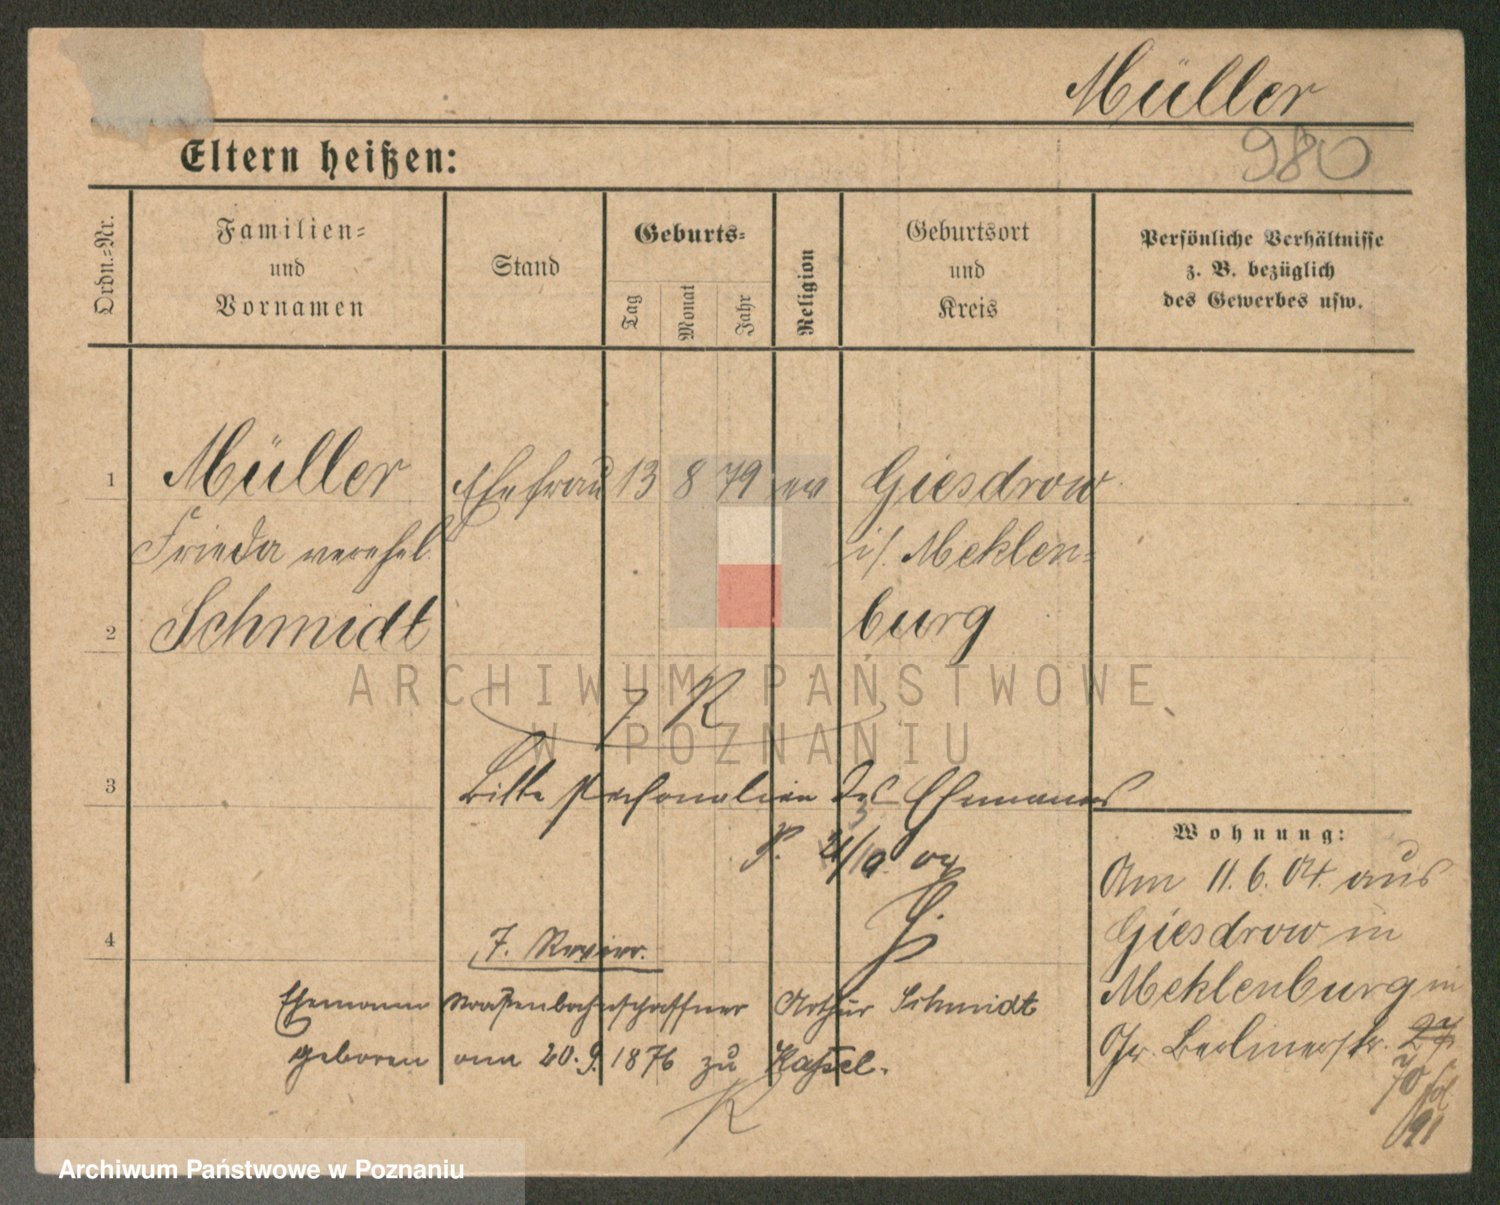 Müller
980
Eltern heißen:
Ordn.-Nr.
Familien-
und
Vornamen
Stand
Geburts-
Tag
Monat
Jahr
Religion
Geburtsort
und
Kreis
Persönliche Verhältnisse
z. B. bezüglich
des Gewerbes usw.
1 Müller Ehefrau 13 8 79 ev Giesdrow
Frieda verehel. i/. Meklen-
2 Schmidt burg
ARCHIWUM PAŃSTWOWE
W POZNANIU
7 R
3 Bitte Personalien des Ehemanns
Wohnung:
Am 11.6.04. aus
Giesdrow in
Meklenburg in
Gr. Berlinerstr. 27
70
91
4
7. Revier.
Ehemann Straßenbahnschaffner Arthur Schmidt
geboren am 20.9.1876 zu Kassel.
Archiwum Państwowe w Poznaniu